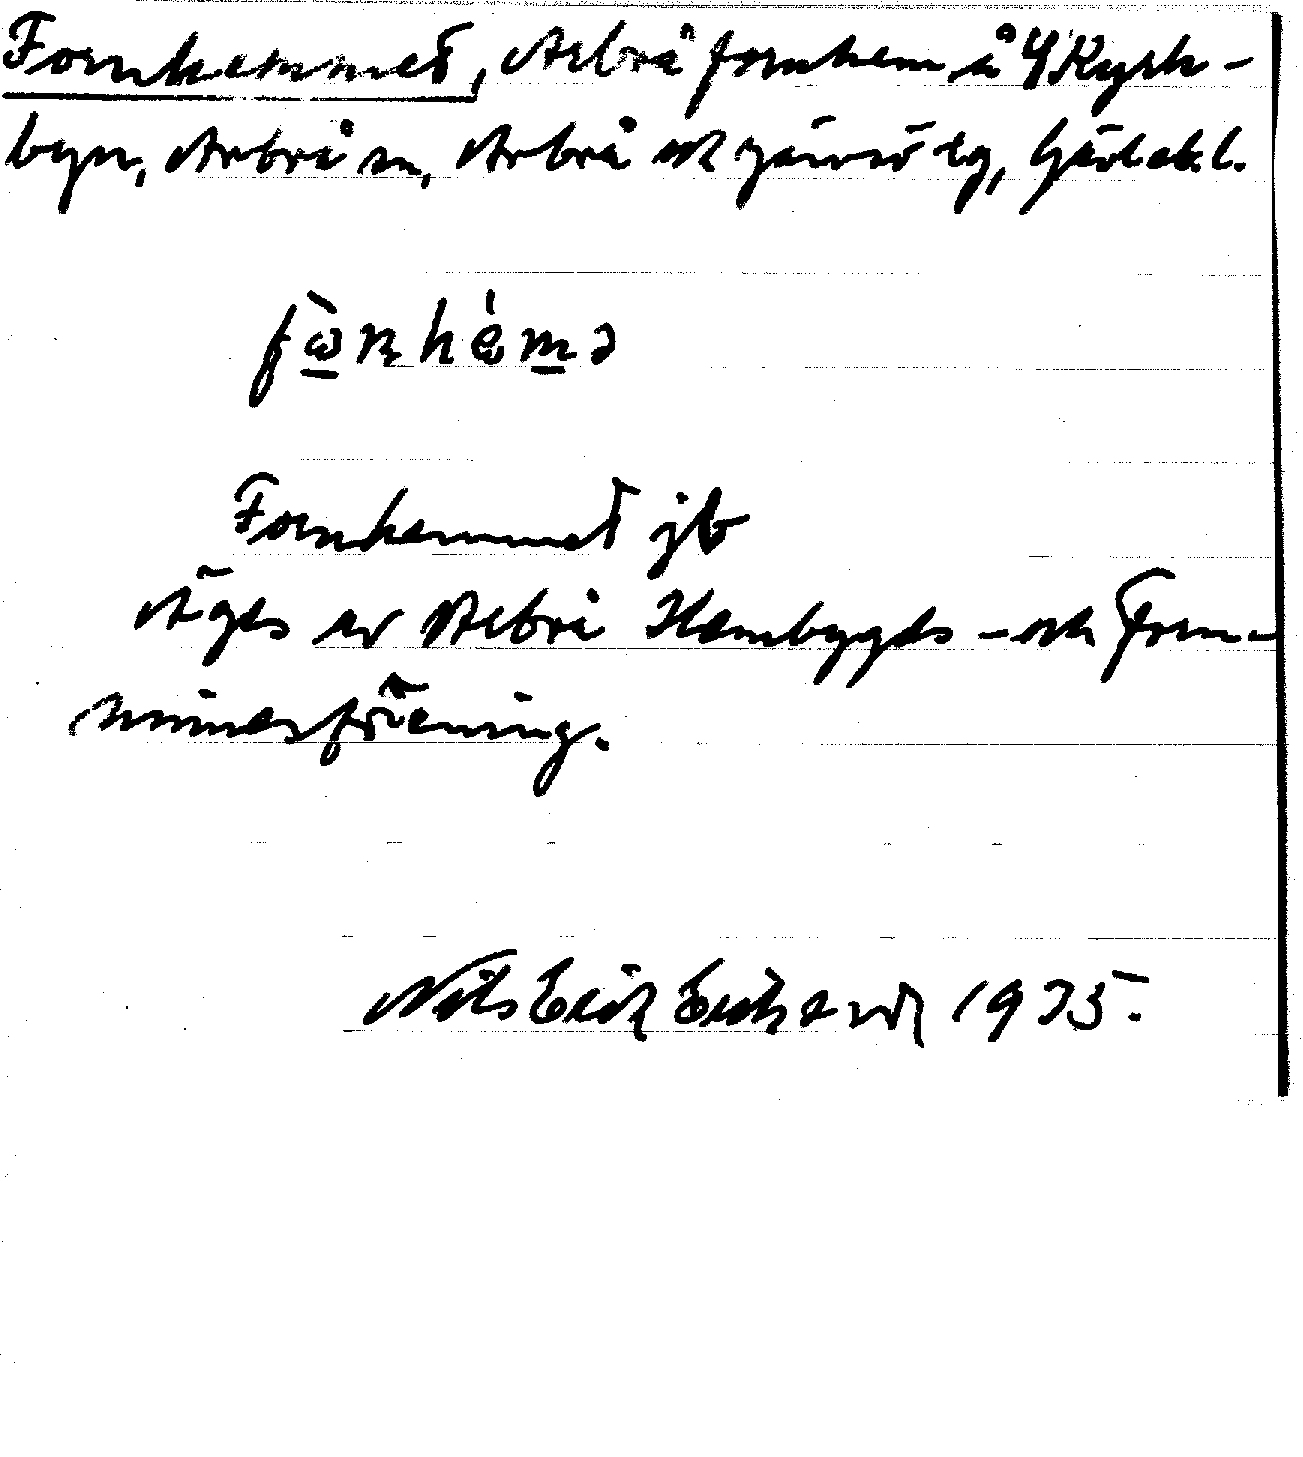 Fornhemmet, Arbrå fornhem å Kyrk-
byn, Arbrå sn, Arbrå och Järvsö tg, Gävleb. l.
Fornhemmet jb
Äges av Arbrå Hembygds- och Forn-
minnesförening.
Nils Erik 1935.